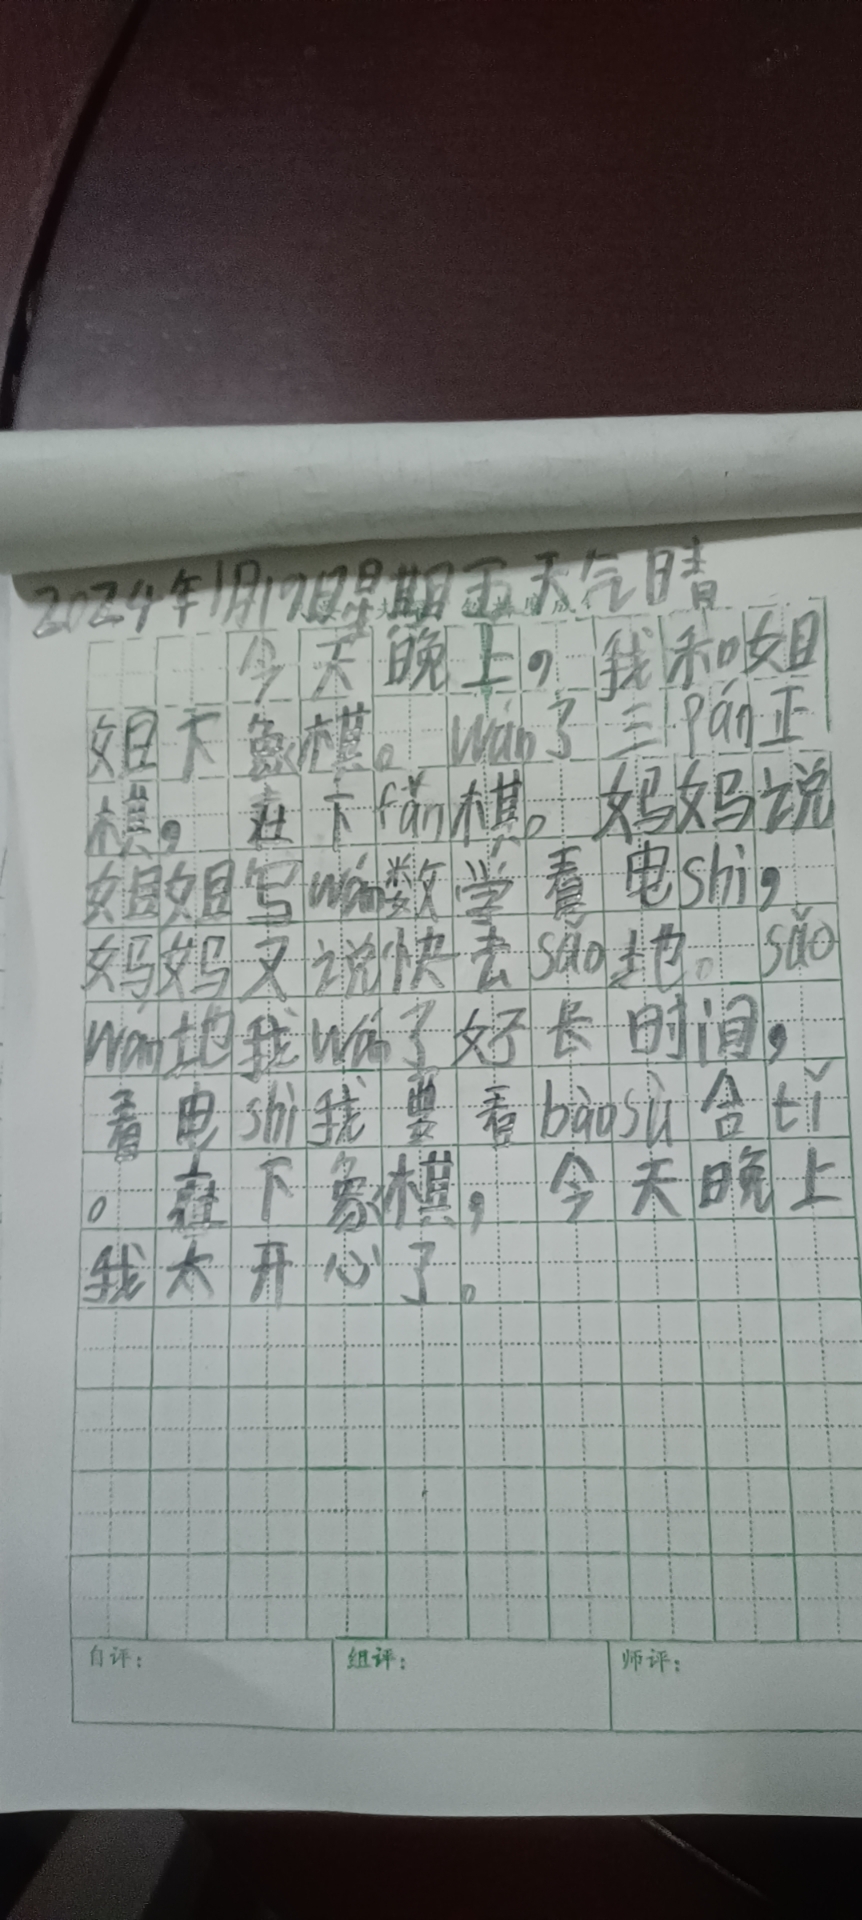 2024年1月17日星期五天气晴
今天晚上，我和姐
姐下象棋。wán了三pán正
棋，在下fǎn棋。妈妈说
姐姐写wán数学看电shì，
妈妈又说快去sǎo地。sǎo
wán地我wán了好长时间，
看电shì我要看bàosù合tǐ
。在下象棋，今天晚上
我太开心了。
自评： 组评： 师评：